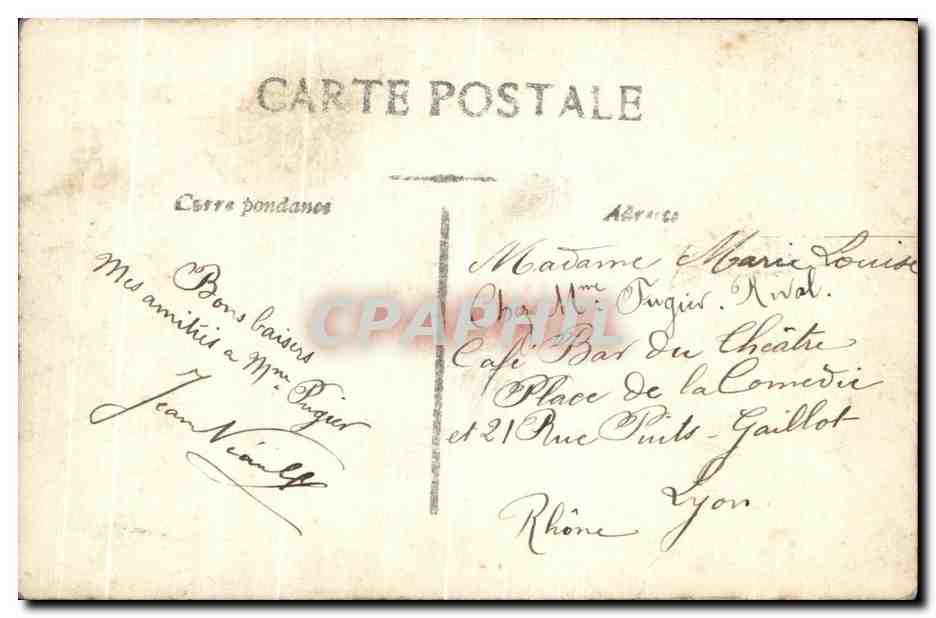 CARTE POSTALE
Correspondance
Bons baisers
Mes amitiés a Mme Pugier
Jean
Adresse
Madame Marie Louise
Chez Mme Pugier. Rival.
Café Bar du Théâtre
Place de la Comedie
et 21 Rue Puits-Gaillot
Lyon
Rhône
CPAPHIL